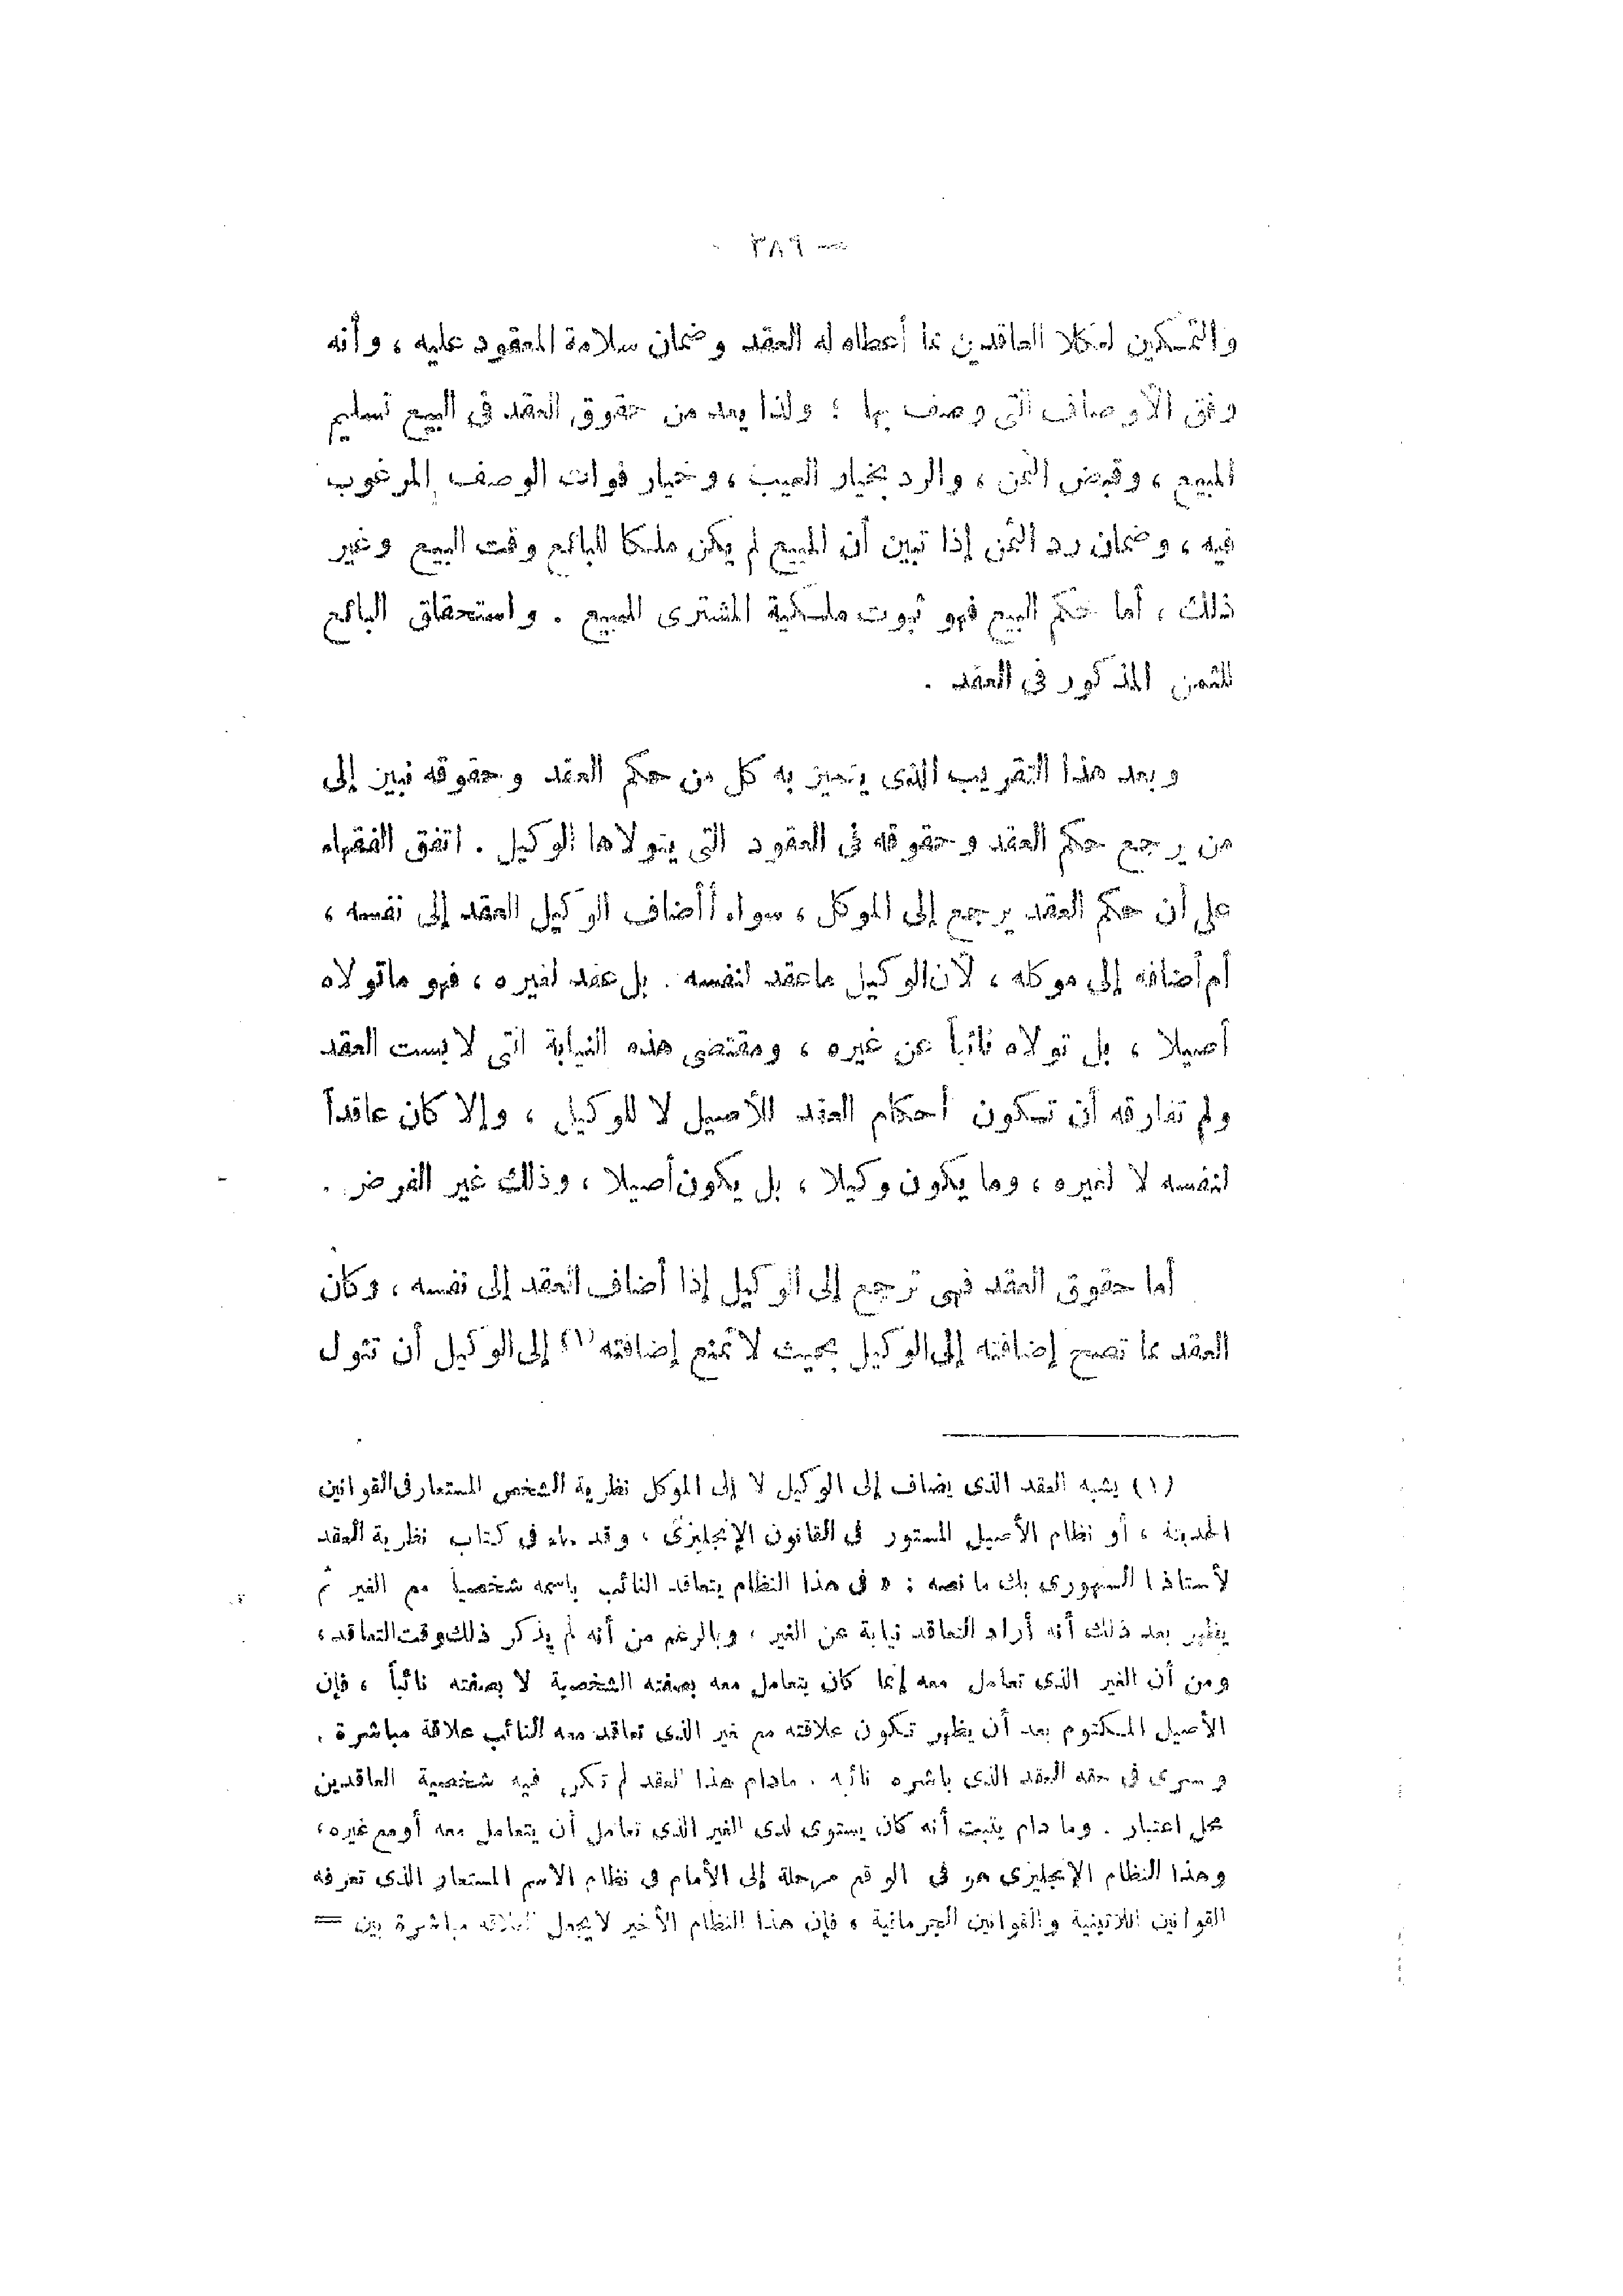 — ٣٨٩ —
والتمكين لكلا العاقدين مما أعطاه له العقد وضمان سلامة المعقود عليه ، وأنه
وفق الأوصاف التى وصف بها ؛ ولذا يعد من حقوق العقد فى البيع تسليم
المبيع ، وقبض الثمن ، والرد بخيار العيب ، وخيار فوات الوصف المرغوب
فيه ، وضمان رد الثمن إذا تبين أن المبيع لم يكن ملكا للبائع وقت البيع وغير
ذلك ، أما حكم البيع فهو ثبوت ملكية المشترى للمبيع . واستحقاق البائع
للثمن المذكور فى العقد .
وبعد هذا التقريب الذى يتميز به كل من حكم العقد وحقوقه نبين إلى
من يرجع حكم العقد وحقوقه فى العقود التى يتولاها الوكيل . اتفق الفقهاء
على أن حكم العقد يرجع إلى الموكل ، سواء أأضاف الوكيل العقد إلى نفسه ،
أم أضافه إلى موكله ، لأن الوكيل ما عقد لنفسه . بل عقد لغيره ، فهو ما تولاه
أصيلا ، بل تولاه نائباً عن غيره ، ومقتضى هذه النيابة التى لابست العقد
ولم تفارقه أن تكون أحكام العقد للأصيل لا للوكيل ، وإلا كان عاقداً
لنفسه لا لغيره ، وما يكون وكيلا ، بل يكون أصيلا ، وذلك غير الفرض .
أما حقوق العقد فهى ترجع إلى الوكيل إذا أضاف العقد إلى نفسه ، وكان
العقد مما تصح إضافته إلى الوكيل بحيث لا تمنع إضافته (١) إلى الوكيل أن تئول
(١) يشبه العقد الذى يضاف إلى الوكيل لا إلى الموكل نظرية الشخص المستعار فى القوانين
الحديثة ، أو نظام الأصيل المستور فى القانون الإنجليزى ، وقد جاء فى كتاب نظرية العقد
لأستاذنا السنهورى بك ما نصه : « فى هذا النظام يتعاقد النائب باسمه شخصياً مع الغير ثم
يظهر بعد ذلك أنه أراد التعاقد نيابة عن الغير ، وبالرغم من أنه لم يذكر ذلك وقت التعاقد ،
ومن أن الغير الذى تعامل معه إنما كان يتعامل معه بصفته الشخصية لا بصفته نائباً ، فإن
الأصيل المكتوم بعد أن يظهر تكون علاقته مع غير الذى تعاقد معه النائب علاقة مباشرة .
وسرى فى حقه العقد الذى باشره نائبه . مادام هذا العقد لم تكن فيه شخصية العاقدين
محل اعتبار . وما دام يثبت أنه كان يستوى لدى الغير الذى تعامل أن يتعامل معه أو مع غيره ،
وهذا النظام الإنجليزى هو فى الوقع مرحلة إلى الأمام فى نظام الاسم المستعار الذى تعرفه
القوانين اللاتينية والقوانين الجرمانية ، فإن هذا النظام الأخير لا يجعل العلاقة مباشرة بين =